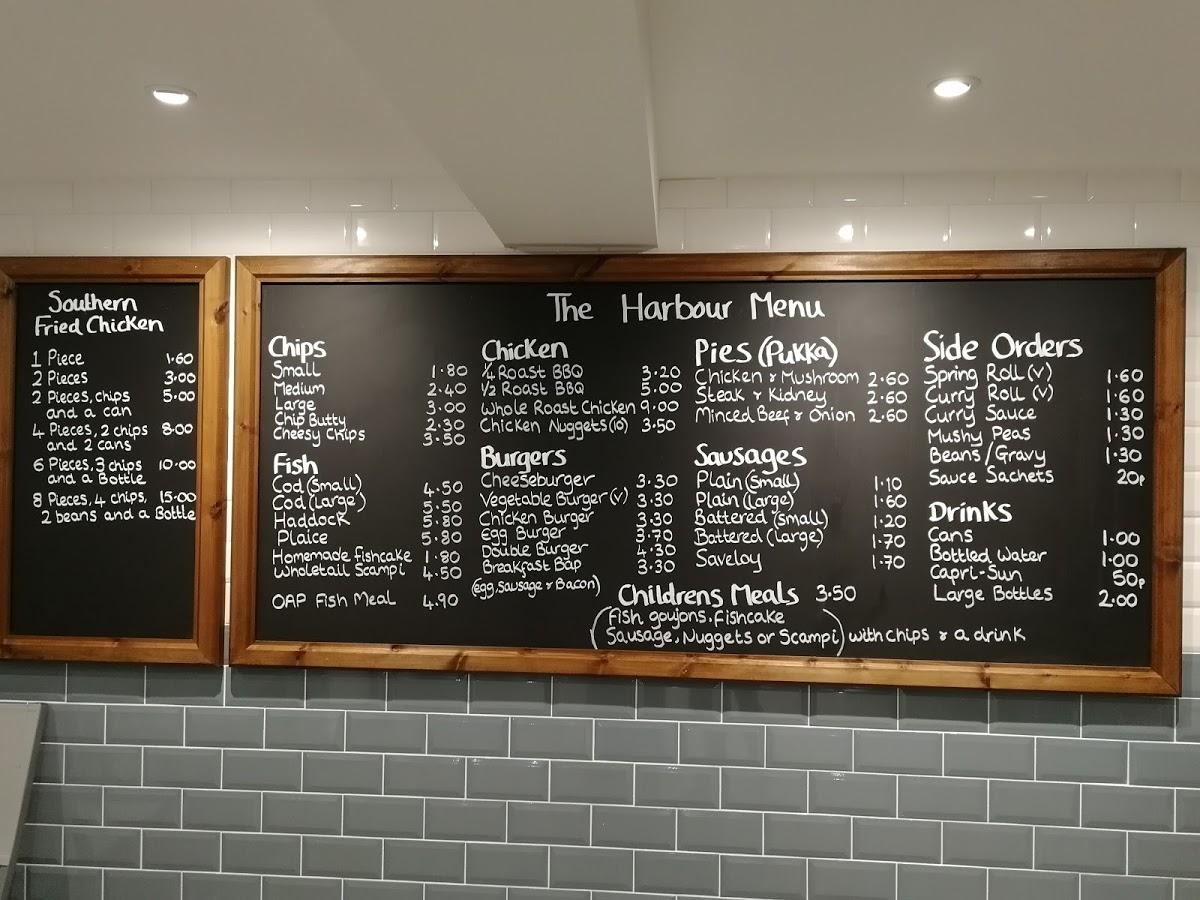 Southern
Fried Chicken
1 Piece 1.60
2 Pieces 3.00
2 Pieces, chips 5.00
and a can
4 Pieces, 2 chips 8.00
and 2 cans
6 Pieces, 3 chips 10.00
and a Bottle
8 Pieces, 4 chips, 15.00
2 beans and a Bottle
The Harbour Menu
Chips
Small 1.80
Medium 2.40
Large 3.00
Chip Butty 2.30
Cheesy Chips 3.50
Fish
Cod (Small) 4.50
Cod (Large) 5.50
Haddock 5.80
Plaice 5.80
Homemade fishcake 1.80
Wholetail Scampi 4.50
OAP Fish Meal 4.90
Chicken
1/4 Roast BBQ 3.20
1/2 Roast BBQ 5.00
Whole Roast Chicken 9.00
Chicken Nuggets (10) 3.50
Burgers
Cheeseburger 3.30
Vegetable Burger (v) 3.30
Chicken Burger 3.30
Egg Burger 3.70
Double Burger 4.30
Breakfast Bap 3.30
(egg, Sausage & Bacon)
Pies (Pukka)
Chicken & Mushroom 2.60
Steak & Kidney 2.60
Minced Beef & Onion 2.60
Sausages
Plain (Small) 1.10
Plain (large) 1.60
Battered (small) 1.20
Battered (large) 1.70
Saveloy 1.70
Childrens Meals 3.50
(Fish goujons, Fishcake
Sausage, Nuggets or Scampi) with chips & a drink
Side Orders
Spring Roll (v) 1.60
Curry Roll (v) 1.60
Curry Sauce 1.30
Mushy Peas 1.30
Beans/Gravy 1.30
Sauce Sachets 20p
Drinks
Cans 1.00
Bottled Water 1.00
Capri-Sun 50p
Large Bottles 2.00